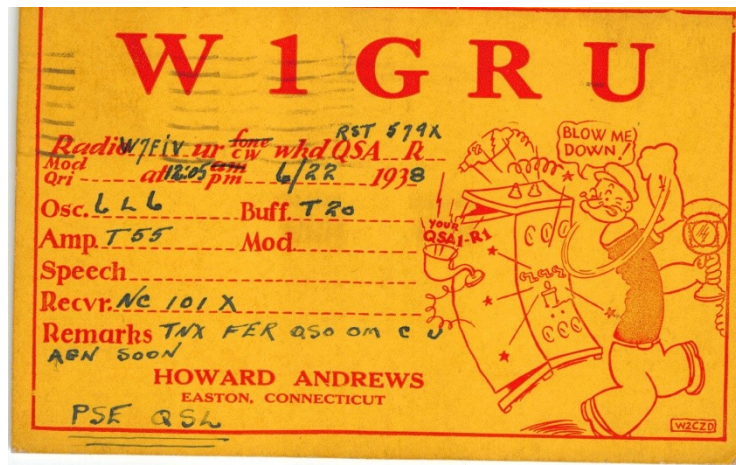 W1GRU
Radio W7FIV ur fone cw whd QSA R RST 579X
Mod
Qri at 12:05 am pm 6/22 1938
Osc. 6L6 Buff. T20
Amp. T55 Mod
Speech
Recvr. NC 101X
Remarks TNX FER QSO OM C U
AGN SOON
HOWARD ANDREWS
EASTON, CONNECTICUT
PSE QSL
BLOW ME
DOWN!
YOUR
QSA1-R1
W2CZD